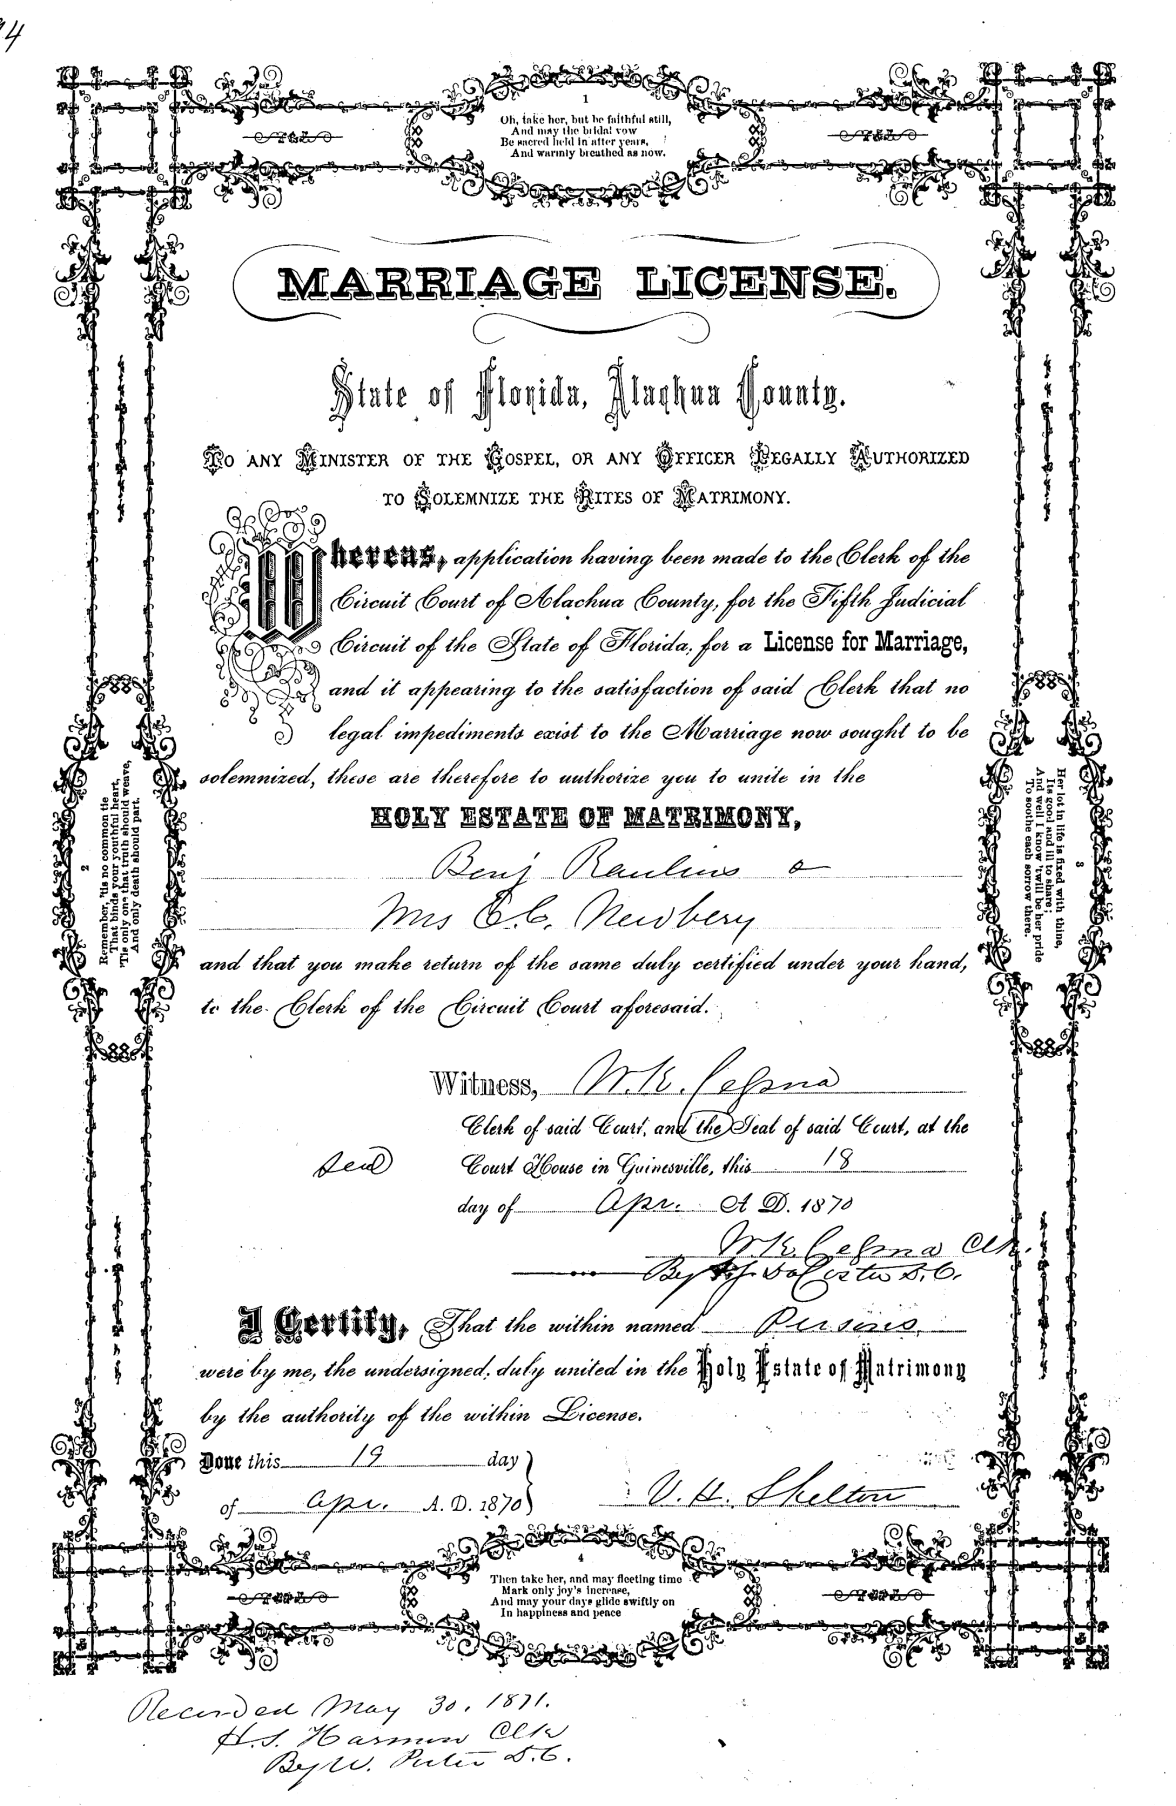 94
1
Oh, take her, but be faithful still,
And may the bridal vow
Be sacred held in after years,
And warmly breathed as now.
MARRIAGE LICENSE.
State of Florida, Alachua County.
TO ANY MINISTER OF THE GOSPEL, OR ANY OFFICER LEGALLY AUTHORIZED
TO SOLEMNIZE THE RITES OF MATRIMONY.
Whereas, application having been made to the Clerk of the
Circuit Court of Alachua County, for the Fifth Judicial
Circuit of the State of Florida, for a License for Marriage,
and it appearing to the satisfaction of said Clerk that no
legal impediments exist to the Marriage now sought to be
solemnized, these are therefore to authorize you to unite in the
HOLY ESTATE OF MATRIMONY,
Benj Raulins &
Mrs C. C. Newbery
and that you make return of the same duly certified under your hand,
to the Clerk of the Circuit Court aforesaid.
Witness, W. K. Cessna
Clerk of said Court, and the Seal of said Court, at the
seal Court House in Gainesville, this 18
day of Apr. A D. 1870
W. K. Cessna Clk.
By D. C.
I Certify, That the within named Persons
were by me, the undersigned, duly united in the Holy Estate of Matrimony
by the authority of the within License.
Done this 19 day
of Apr. A. D. 1870
V. H. Shelton
2
Remember, 'tis no common tie
That binds your youthful heart,
'Tis only one that truth should weave,
And only death should part.
3
Her lot in life is fixed with thine,
Its good and ill to share;
And well I know 'twill be her pride
To soothe each sorrow there.
4
Then take her, and may fleeting time
Mark only joy's increase,
And may your days glide swiftly on
In happiness and peace
Recorded May 30. 1871.
H. S. Harmon Clk
By W. D. C.